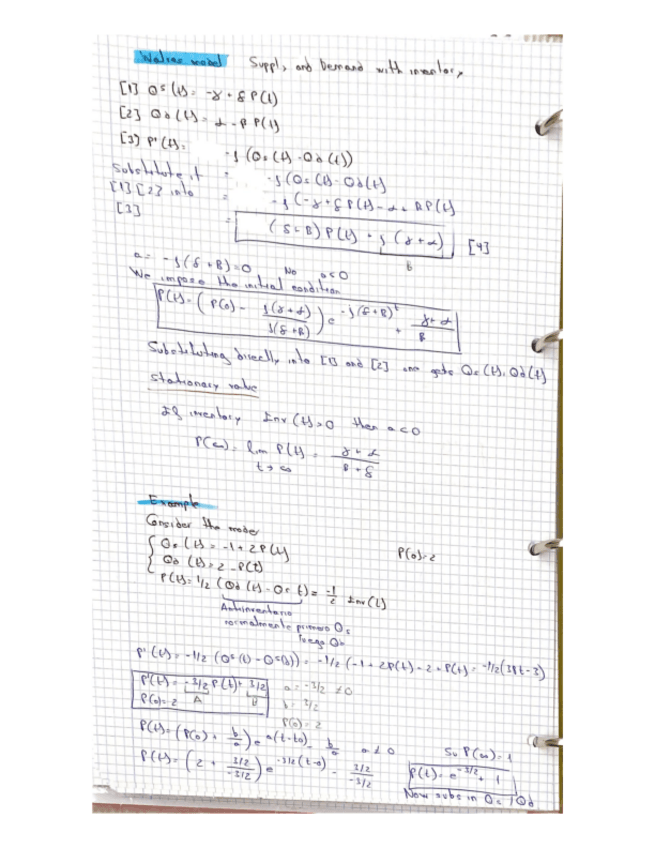 Walras model Supply and Demand with inventory
[1] Os(t) = -γ + δP(t)
[2] Od(t) = α - βP(t)
[3] P'(t) = -ʃ(Os(t) - Od(t))
Substitute it = -ʃ(Os(t) - Od(t)
[1] [2] into = -ʃ(-γ + δP(t) - α + βP(t)
[3] = (δ+B)P(t) + ʃ(γ+α) [4]
B
a = -ʃ(δ+B) = 0 No a<0
We impose the initial condition
P(t) = (P(0) - ʃ(γ+α)/ʃ(δ+B)) e^-ʃ(δ+B)t + γ+α/B
Substituting directly into [1] and [2] one gets Os(t), Od(t)
Stationary value
If inventory Inv(t)>0 then a<0
P(∞) = lim t→∞ P(t) = γ+α/β+δ
Example
Consider the model
Os(t) = -1 + 2P(t) P(0)=2
Od(t) = 2 - P(t)
P(t) = 1/2 (Od(t) - Os t) = -1/2 Inv(t)
Antiinventario
normalmente primero Os
luego Od
P'(t) = -1/2 (Os(t) - Os(t)) = -1/2 (-1 + 2P(t) - 2 + P(t) = -1/2(3Pt - 3)
P'(t) = -3/2 P(t) + 3/2 a = -3/2 ≠0
P(0)=2 A B b = 3/2
P(0)=2
P(t) = (P(0) + b/a) e^a(t-t0) - b/a a≠0 So P(∞)=1
P(t) = (2 + 3/2/-3/2) e^-3/2(t-0) - 3/2/-3/2 P(t) = e^-3/2 + 1
Now subs in Os/Od